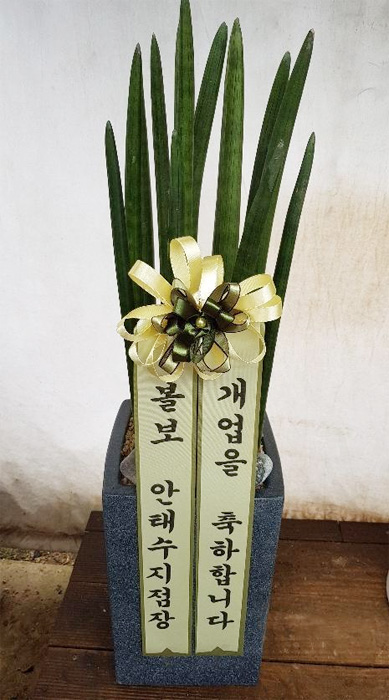 개업을 축하합니다
볼보 안태수지점장